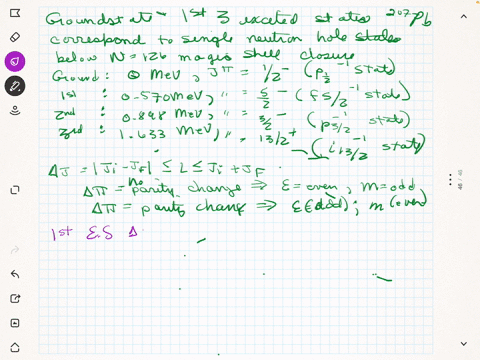 Groundstate - 1st 3 excited states 207Pb
correspond to single neutron hole states
below N = 126 magic shell closure
Ground: 0 MeV, Jπ = 1/2- (p1/2 -1 state)
1st : 0.570 MeV, " = 5/2- (f5/2 -1 state)
2nd : 0.898 MeV, " = 3/2- (p3/2 -1 state)
3rd : 1.633 MeV, " = 13/2+ (i13/2 -1 state)
ΔJ = |Ji - JF| ≤ L ≤ Ji + JF
Δπ = no parity change ⇒ E = even, M = odd
Δπ = parity change ⇒ E(odd); m(even)
1st E.S Δ